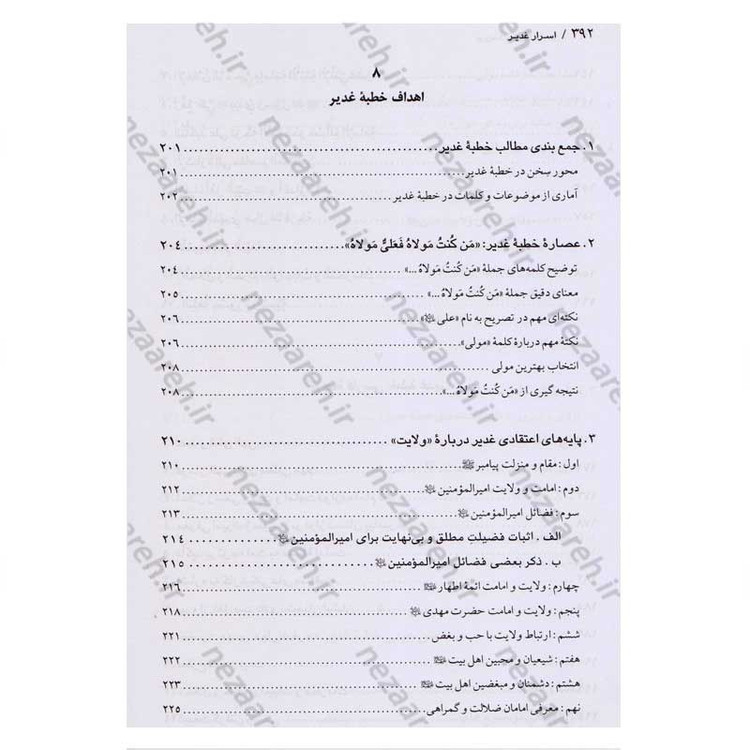 ۳۹۲ / اسرار غدیر
۸
اهداف خطبهٔ غدیر
۱. جمع بندی مطالب خطبهٔ غدیر ۲۰۱
محور سخن در خطبهٔ غدیر ۲۰۱
آماری از موضوعات و کلمات در خطبهٔ غدیر ۲۰۲
۲. عصارهٔ خطبهٔ غدیر: «مَن کُنتُ مَولاهُ فَعَلیٌّ مَولاهُ» ۲۰۴
توضیح کلمه‌های جملهٔ «مَن کُنتُ مَولاهُ ...» ۲۰۴
معنای دقیق جملهٔ «مَن کُنتُ مَولاهُ ...» ۲۰۵
نکته‌ای مهم در تصریح به نام «علی ﷺ» ۲۰۶
نکتهٔ مهم دربارهٔ کلمهٔ «مولی» ۲۰۶
انتخاب بهترین مولی ۲۰۸
نتیجه گیری از «مَن کُنتُ مَولاهُ ...» ۲۰۸
۳. پایه‌های اعتقادی غدیر دربارهٔ «ولایت» ۲۱۰
اول: مقام و منزلت پیامبر ﷺ ۲۱۰
دوم: امامت و ولایت امیرالمؤمنین ۲۱۲
سوم: فضائل امیرالمؤمنین ۲۱۳
الف. اثبات فضیلتِ مطلق و بی‌نهایت برای امیرالمؤمنین ۲۱۴
ب. ذکر بعضی فضائل امیرالمؤمنین ۲۱۵
چهارم: ولایت و امامت ائمهٔ اطهار ۲۱۶
پنجم: ولایت و امامت حضرت مهدی ۲۱۸
ششم: ارتباط ولایت با حب و بغض ۲۲۱
هفتم: شیعیان و محبین اهل بیت ۲۲۲
هشتم: دشمنان و مبغضین اهل بیت ۲۲۳
نهم: معرفی امامان ضلالت و گمراهی ۲۲۵
nezaareh.ir